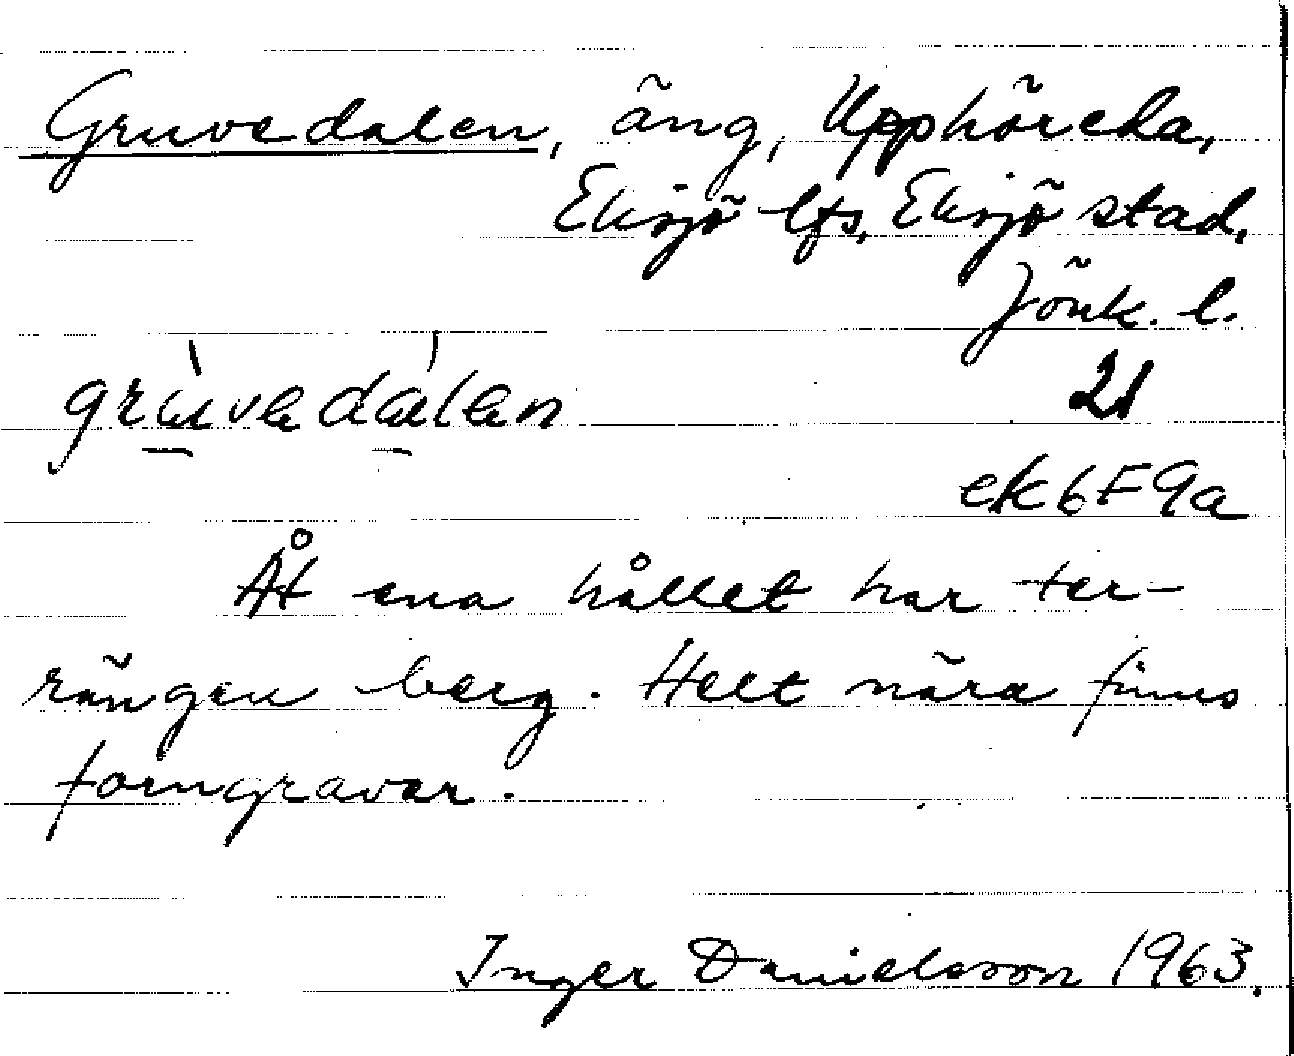 Gruvedalen, äng, Upphöreda,
Eksjö lfs, Eksjö stad,
Jönk. l.
21
ek6F9a
Åt ena hållet har ter-
rängen berg. Helt nära finns
forngravar.
Inger Danielsson 1963.